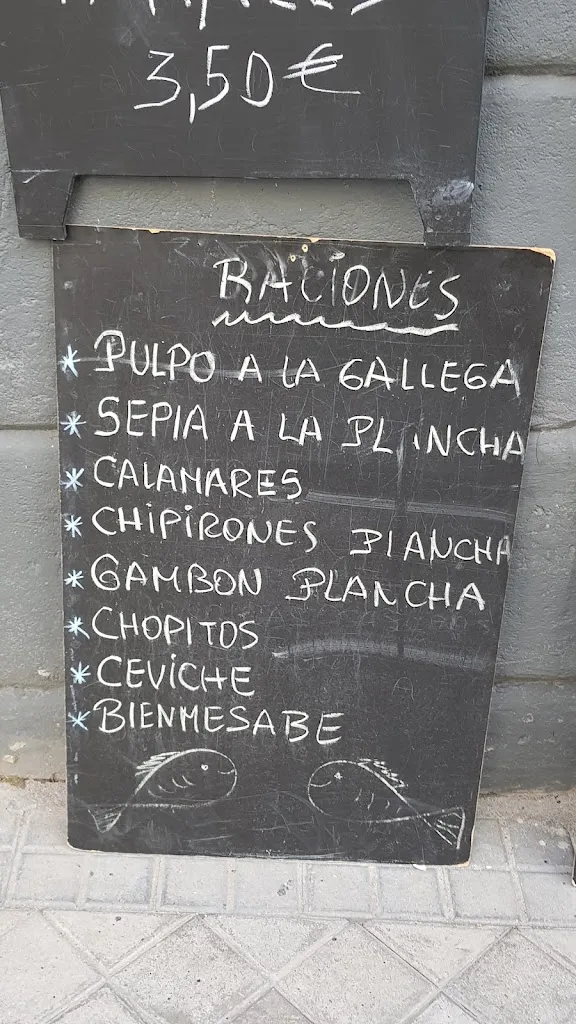 3,50€
RACIONES
* PULPO A LA GALLEGA
* SEPIA A LA PLANCHA
* CALAMARES
* CHIPIRONES PLANCHA
* GAMBON PLANCHA
* CHOPITOS
* CEVICHE
* BIENMESABE